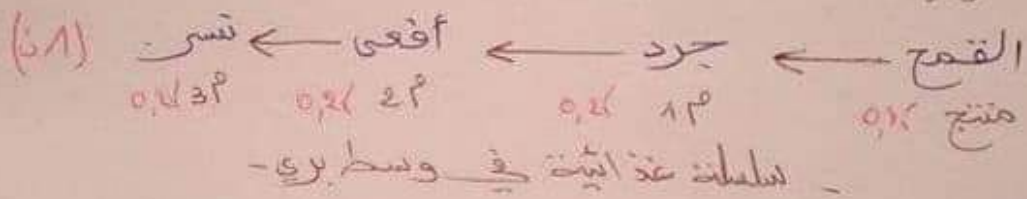 القمح ← جرد ← أفعى ← نسر (1ن)
منتج 0,25 م1 0,25 م2 0,25 م3 0,25
- سلسلة غذائية في وسط بري -